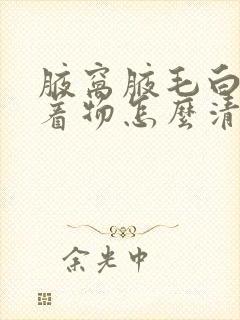 腋窩腋毛白
着物怎麼清
余光中